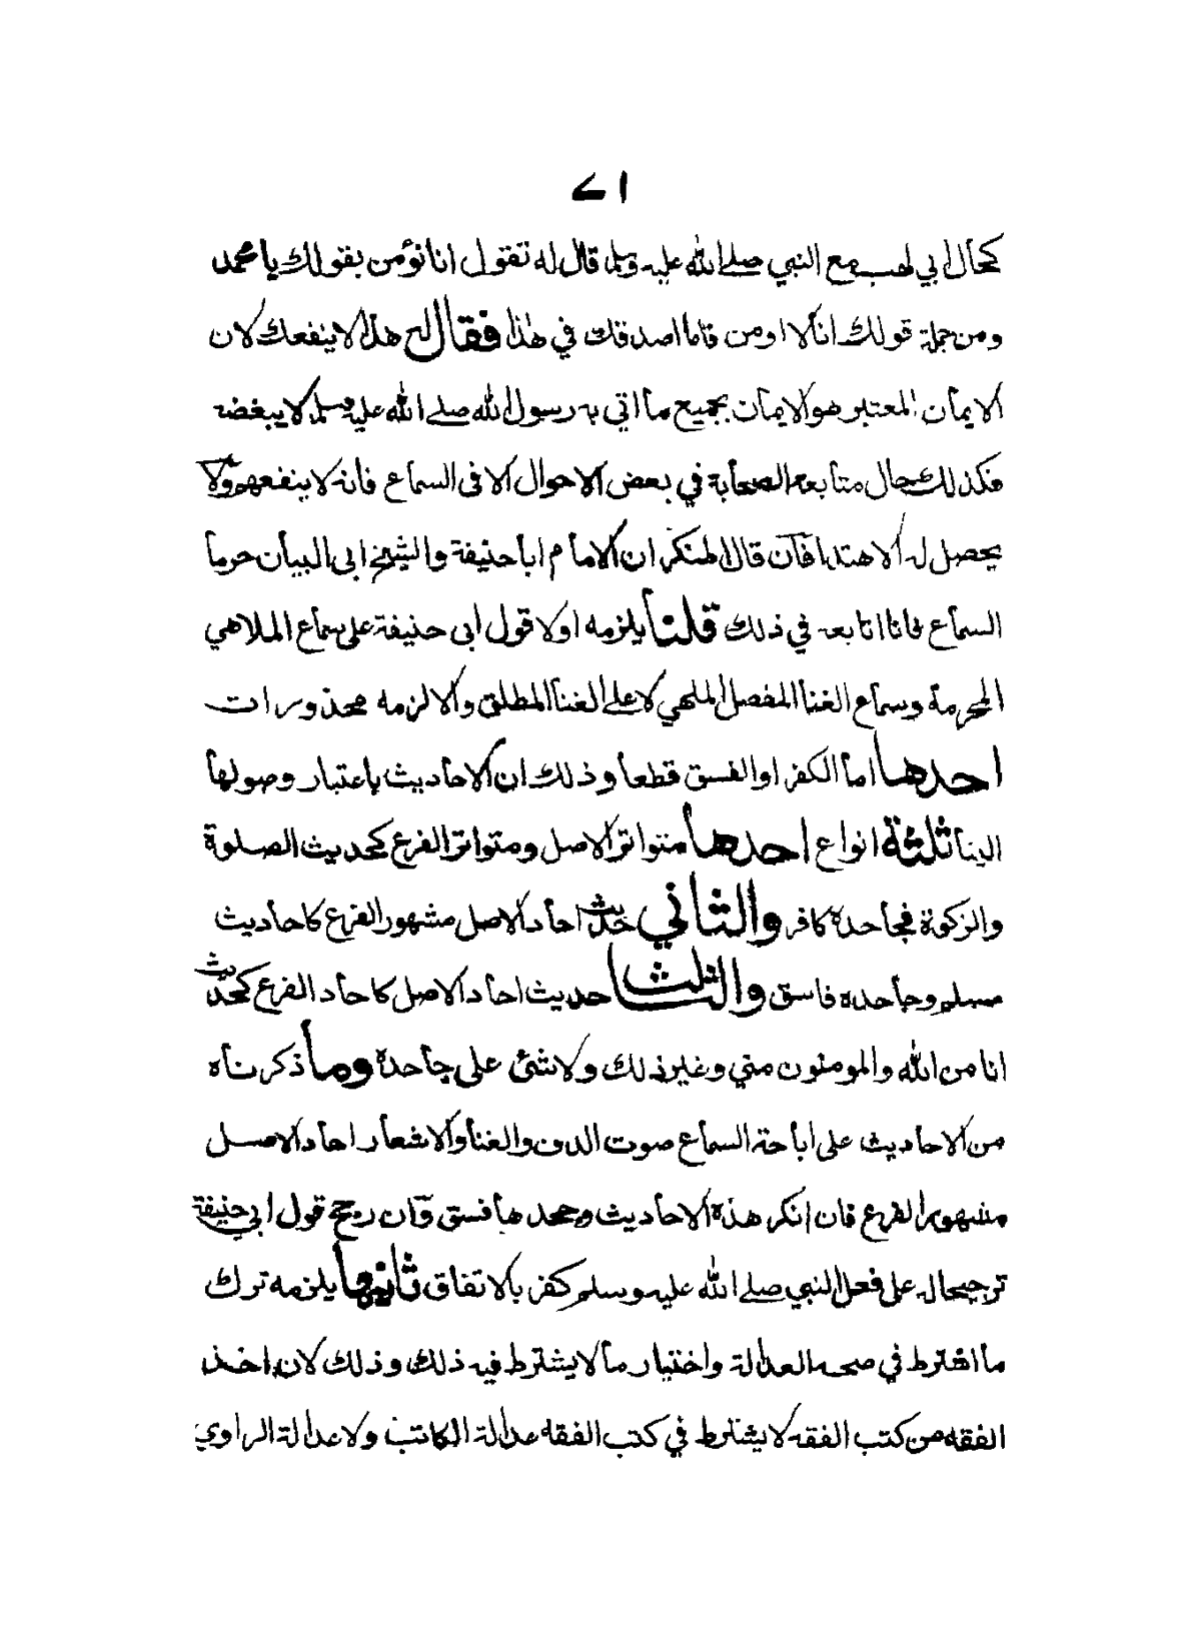 ۷۱
كحال ابي لهب مع النبي صلے الله عليه وسلم قال له تقول انا نؤمن بقولك يا محمد
ومن جملة قولك انا لا اومن فاما اصدقك في هذا فقال له هذا لا ينفعك لان
الايمان المعتبر هو الايمان بجميع ما اتي به رسول الله صلے الله عليه وسلم لا ببعضه
فكذلك حال متابعة الصحابة في بعض الاحوال الا فى السماع فانه لا ينفعهم ولا
يحصل له الاهتداء فان قال المنكر ان الامام ابا حنيفة والشيخ ابى البيان حرما
السماع فانا اتابعه في ذلك قلنا يلزمه اولا قول ابى حنيفة على سماع الملاهي
المحرمة وسماع الغنا المفصل الملهي لا علے الغنا المطلق والا لزمه محذورات
احدها اما الكفر او الفسق قطعا وذلك ان الاحاديث باعتبار وصولها
الينا ثلثة انواع احدها متواتر الاصل ومتواتر الفرع كحديث الصلوة
والزكوة فجاحده كافر والثاني حديث احاد الاصل مشهور الفرع كاحاديث
مسلم وجاحده فاسق والثالث حديث احاد الاصل كاحاد الفرع كحديث
انا من الله والمومنون مني وغير ذلك ولا شئ على جاحده وما ذكرناه
من الاحاديث على اباحة السماع صوت الدف والغنا والاشعار احاد الاصل
مشهور الفرع فان انكر هذه الاحاديث وجحدها فسق وان رجح قول ابي حنيفة
ترجيحا له على فعل النبي صلے الله عليه وسلم كفر بالاتفاق ثانيها يلزمه ترك
ما اشترط في صحه العدالة واختيار ما لا يشترط فيه ذلك وذلك لان اخذ
الفقه من كتب الفقه لا يشترط في كتب الفقه عدالة الكاتب ولا عدالة الراوي